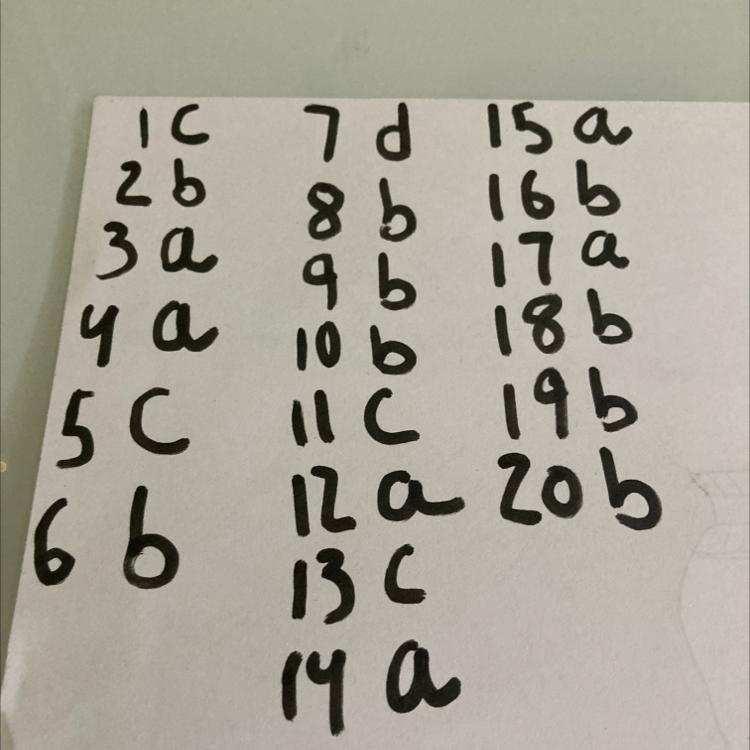 1 c
2 b
3 a
4 a
5 c
6 b
7 d
8 b
9 b
10 b
11 c
12 a
13 c
14 a
15 a
16 b
17 a
18 b
19 b
20 b